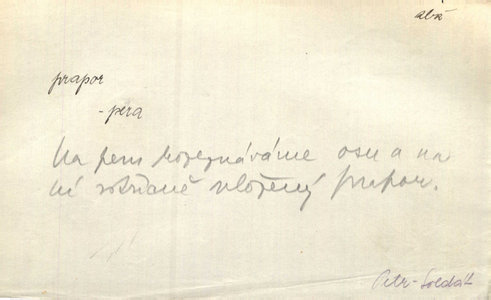 abž
prapor
- péra
Na peru rozeznáváme osu a na
ní vložený prapor.
Petr-Soldát